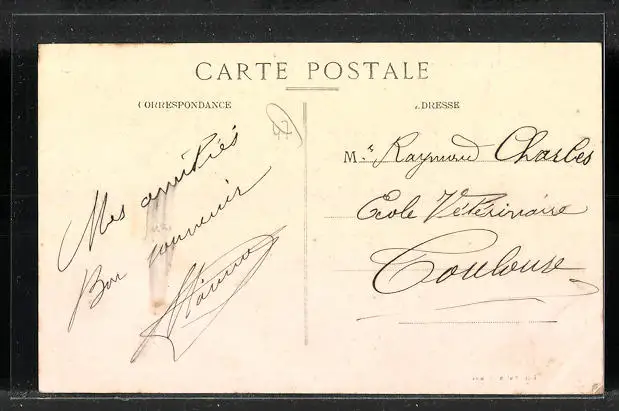 CARTE POSTALE
CORRESPONDANCE
ADRESSE
47
Mes amitiés
Bon souvenir
Mr Raymond Charles
Ecole Vétérinaire
Toulouse